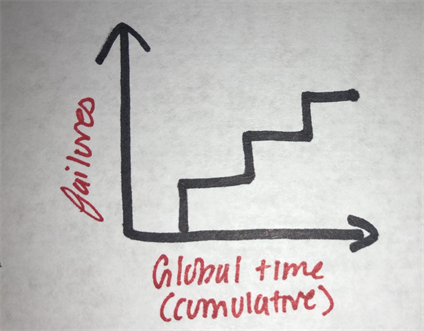 failures
Global time
(cumulative)